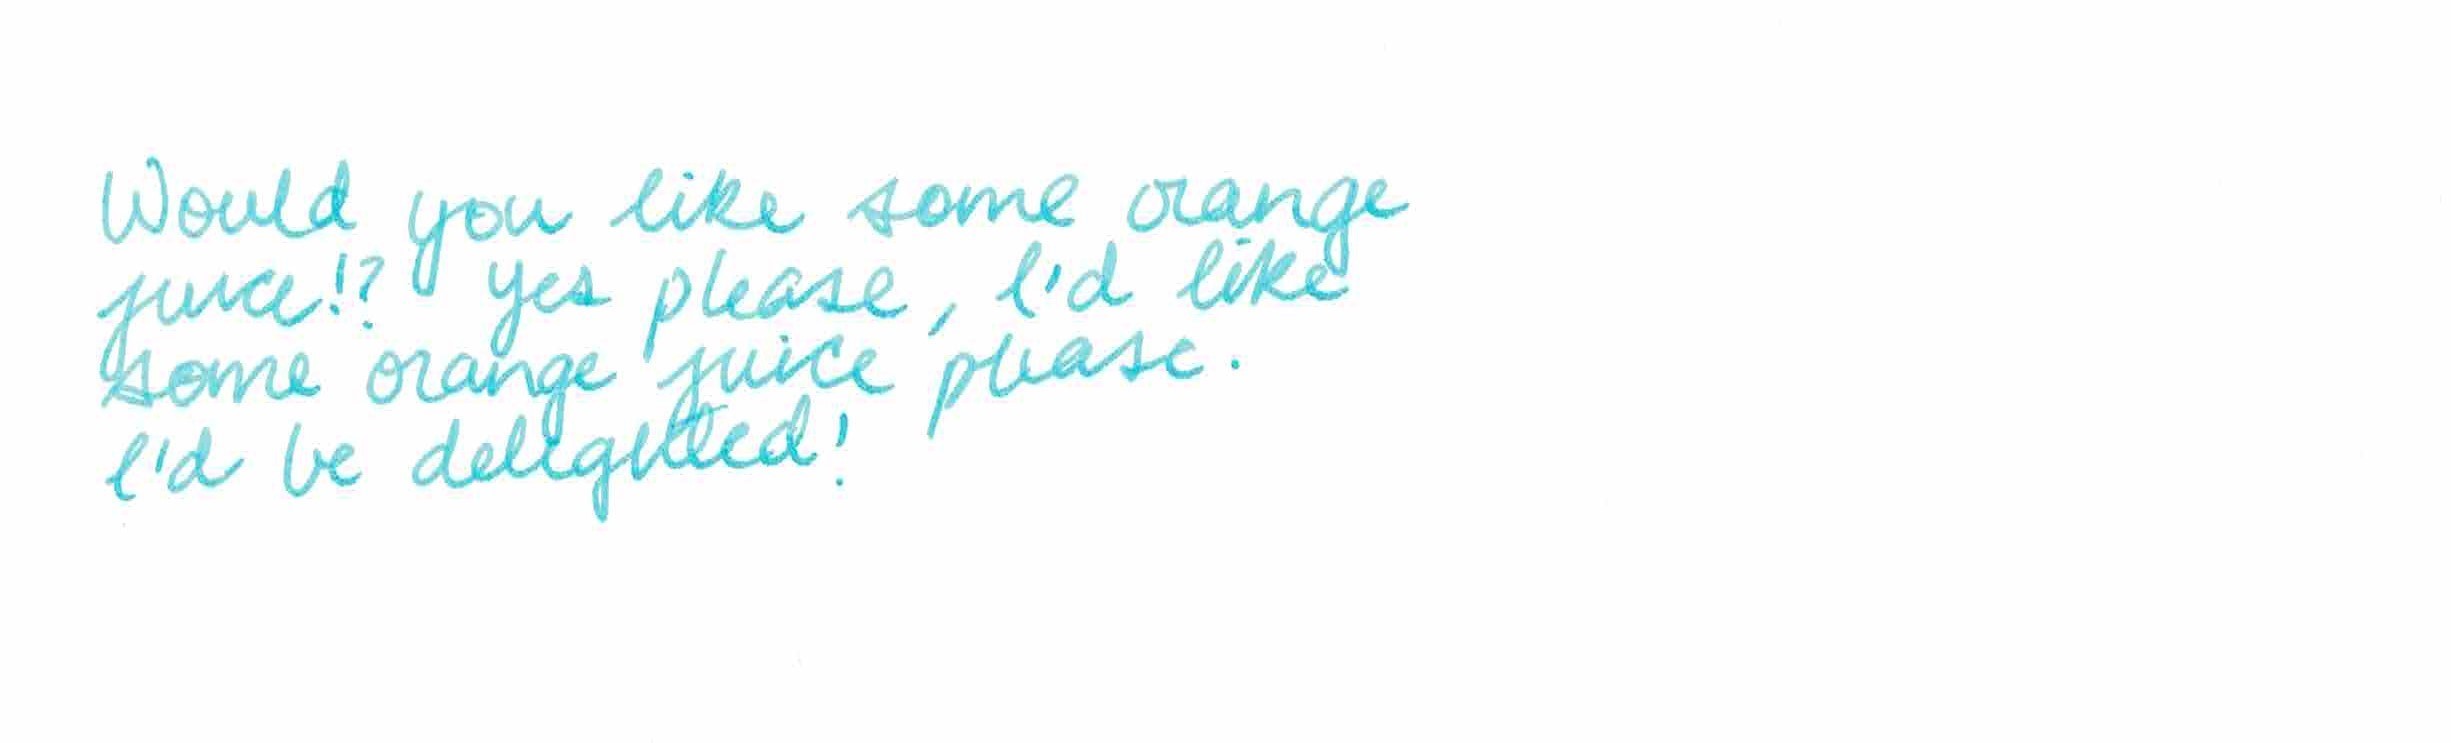 Would you like some orange
juice!? yes please, I'd like
some orange juice please.
I'd be delighted!